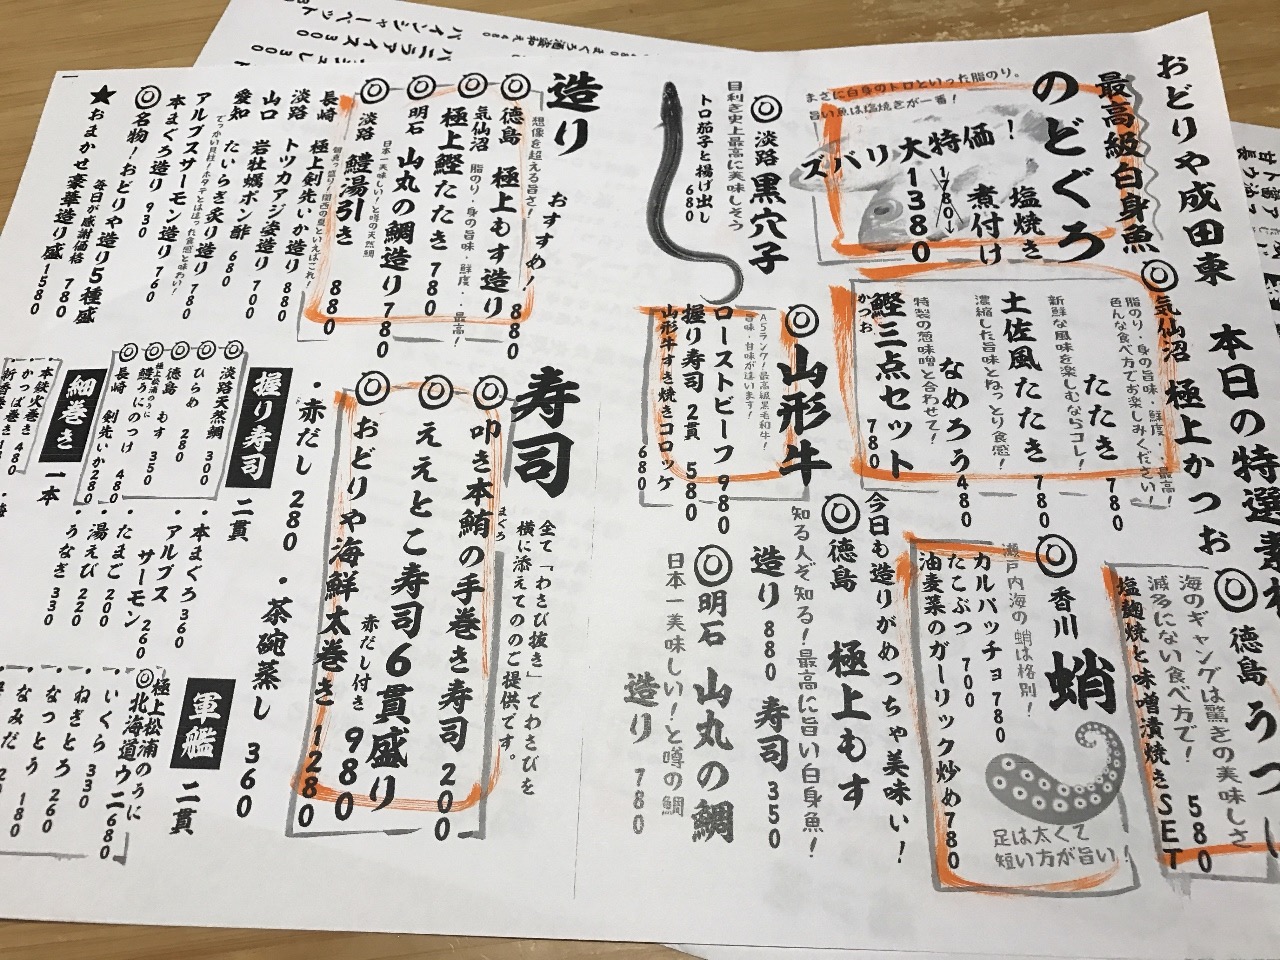 おどりや成田東 本日の特選素
最高級白身魚
のどぐろ
まさに白身のトロといった脂のり。
旨い魚は塩焼きが一番！
塩焼き
煮付け
ズバリ大特価！
1780→
1380
◎淡路黒穴子
目利き史上最高に美味しそう
トロ茄子と揚げ出し
680
◎気仙沼 極上かつお
脂のり・身の旨味・鮮度・・最高！
色んな食べ方でお楽しみください！
たたき 780
新鮮な風味を楽しむならコレ！
土佐風たたき 780
濃縮した旨味とねっとり食感！
なめろう 480
特製の葱味噌と合わせて！
鰹三点セット 780
かつお
◎山形牛
A5ランク！最高級黒毛和牛！
旨味・甘味が違います！
ローストビーフ 980
握り寿司 2貫 580
山形牛すき焼きコロッケ 680
◎徳島 うつ
海のギャングは驚きの美味しさ
滅多にない食べ方で！ 580
塩麹焼と味噌漬焼きSET
◎香川 蛸
瀬戸内海の蛸は格別！
カルパッチョ 780
たこぶつ 700
油麦菜のガーリック炒め 780
足は太くて
短い方が旨い！
今日も造りがめっちゃ美味い！
◎徳島 極上もす
知る人ぞ知る！最高に旨い白身魚！
造り 880 寿司 350
◎明石 山丸の鯛
日本一美味しい！と噂の鯛
造り 780
造り おすすめ！
想像を超える旨さ！
◎徳島 極上もす造り 880
◎気仙沼 脂のり・身の旨味・鮮度・・最高！
極上鰹たたき 780
◎明石 山丸の鯛造り 780
日本一美味しい！と噂の天然鯛
◎淡路 鱧湯引き 880
長崎 極上剣先いか造り 880
淡路 トツカアジ姿造り 700
山口 岩牡蠣ポン酢 680
愛知 たいらぎ炙り造り 780
でっかい貝柱！ホタテとは違った食感と味わい！
アルプスサーモン造り 760
本まぐろ造り 930
◎名物！おどりや造り5種盛 780
毎日が感謝価格
★おまかせ豪華造り盛 1580
寿司
全て「わさび抜き」でわさびを
横に添えてのご提供です。
◎叩き本鮪の手巻き寿司 200
まぐろ
◎ええとこ寿司6貫盛り 980
赤だし付き
◎おどりや海鮮太巻き 1280
・赤だし 280 ・茶碗蒸し 360
握り寿司 二貫
◎淡路天然鯛 300
◎ひらめ 280
◎徳島 もす 350
◎鱧うにのつけ 480
◎長崎 剣先いか 280
・本まぐろ 360
・アルプスサーモン 260
・たまご 200
・湯えび 220
・うなぎ 330
細巻き 一本
本鉄火巻き 480
かっぱ巻き
軍艦 二貫
極上松浦のうに
◎北海道ウニ 680
・いくら 330
・ねぎとろ 260
・なっとう 180
バニラアイス 300
パインシャーベット